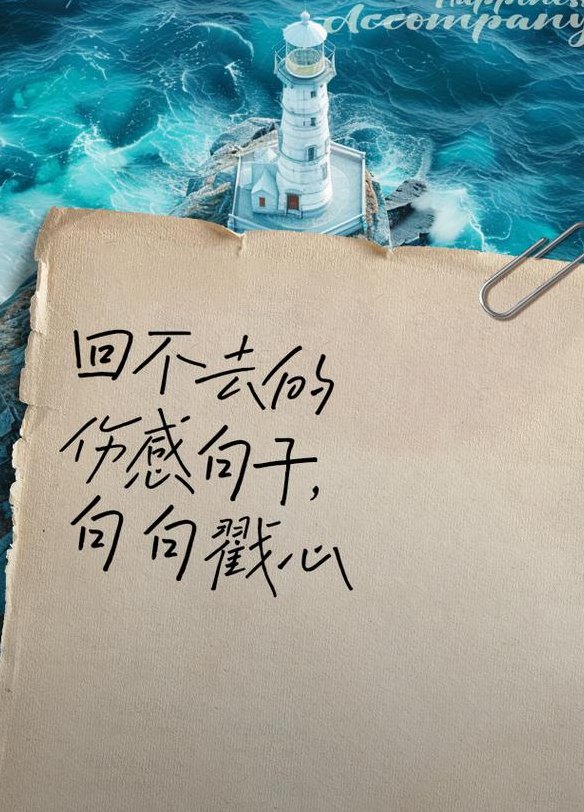 Happiness
Accompany
回不去的
伤感句子,
句句戳心